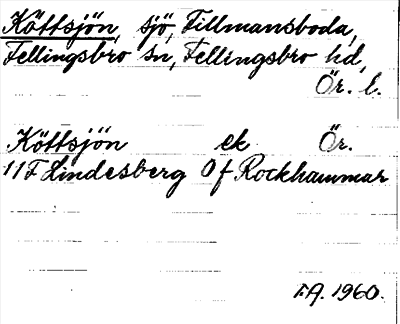 Köttsjön, sjö, Tillmansboda,
Fellingsbro sn, Fellingsbro hd,
Ör. l.
Köttsjön ek Ör.
11F Lindesberg 0f Rockhammar
T.A. 1960.